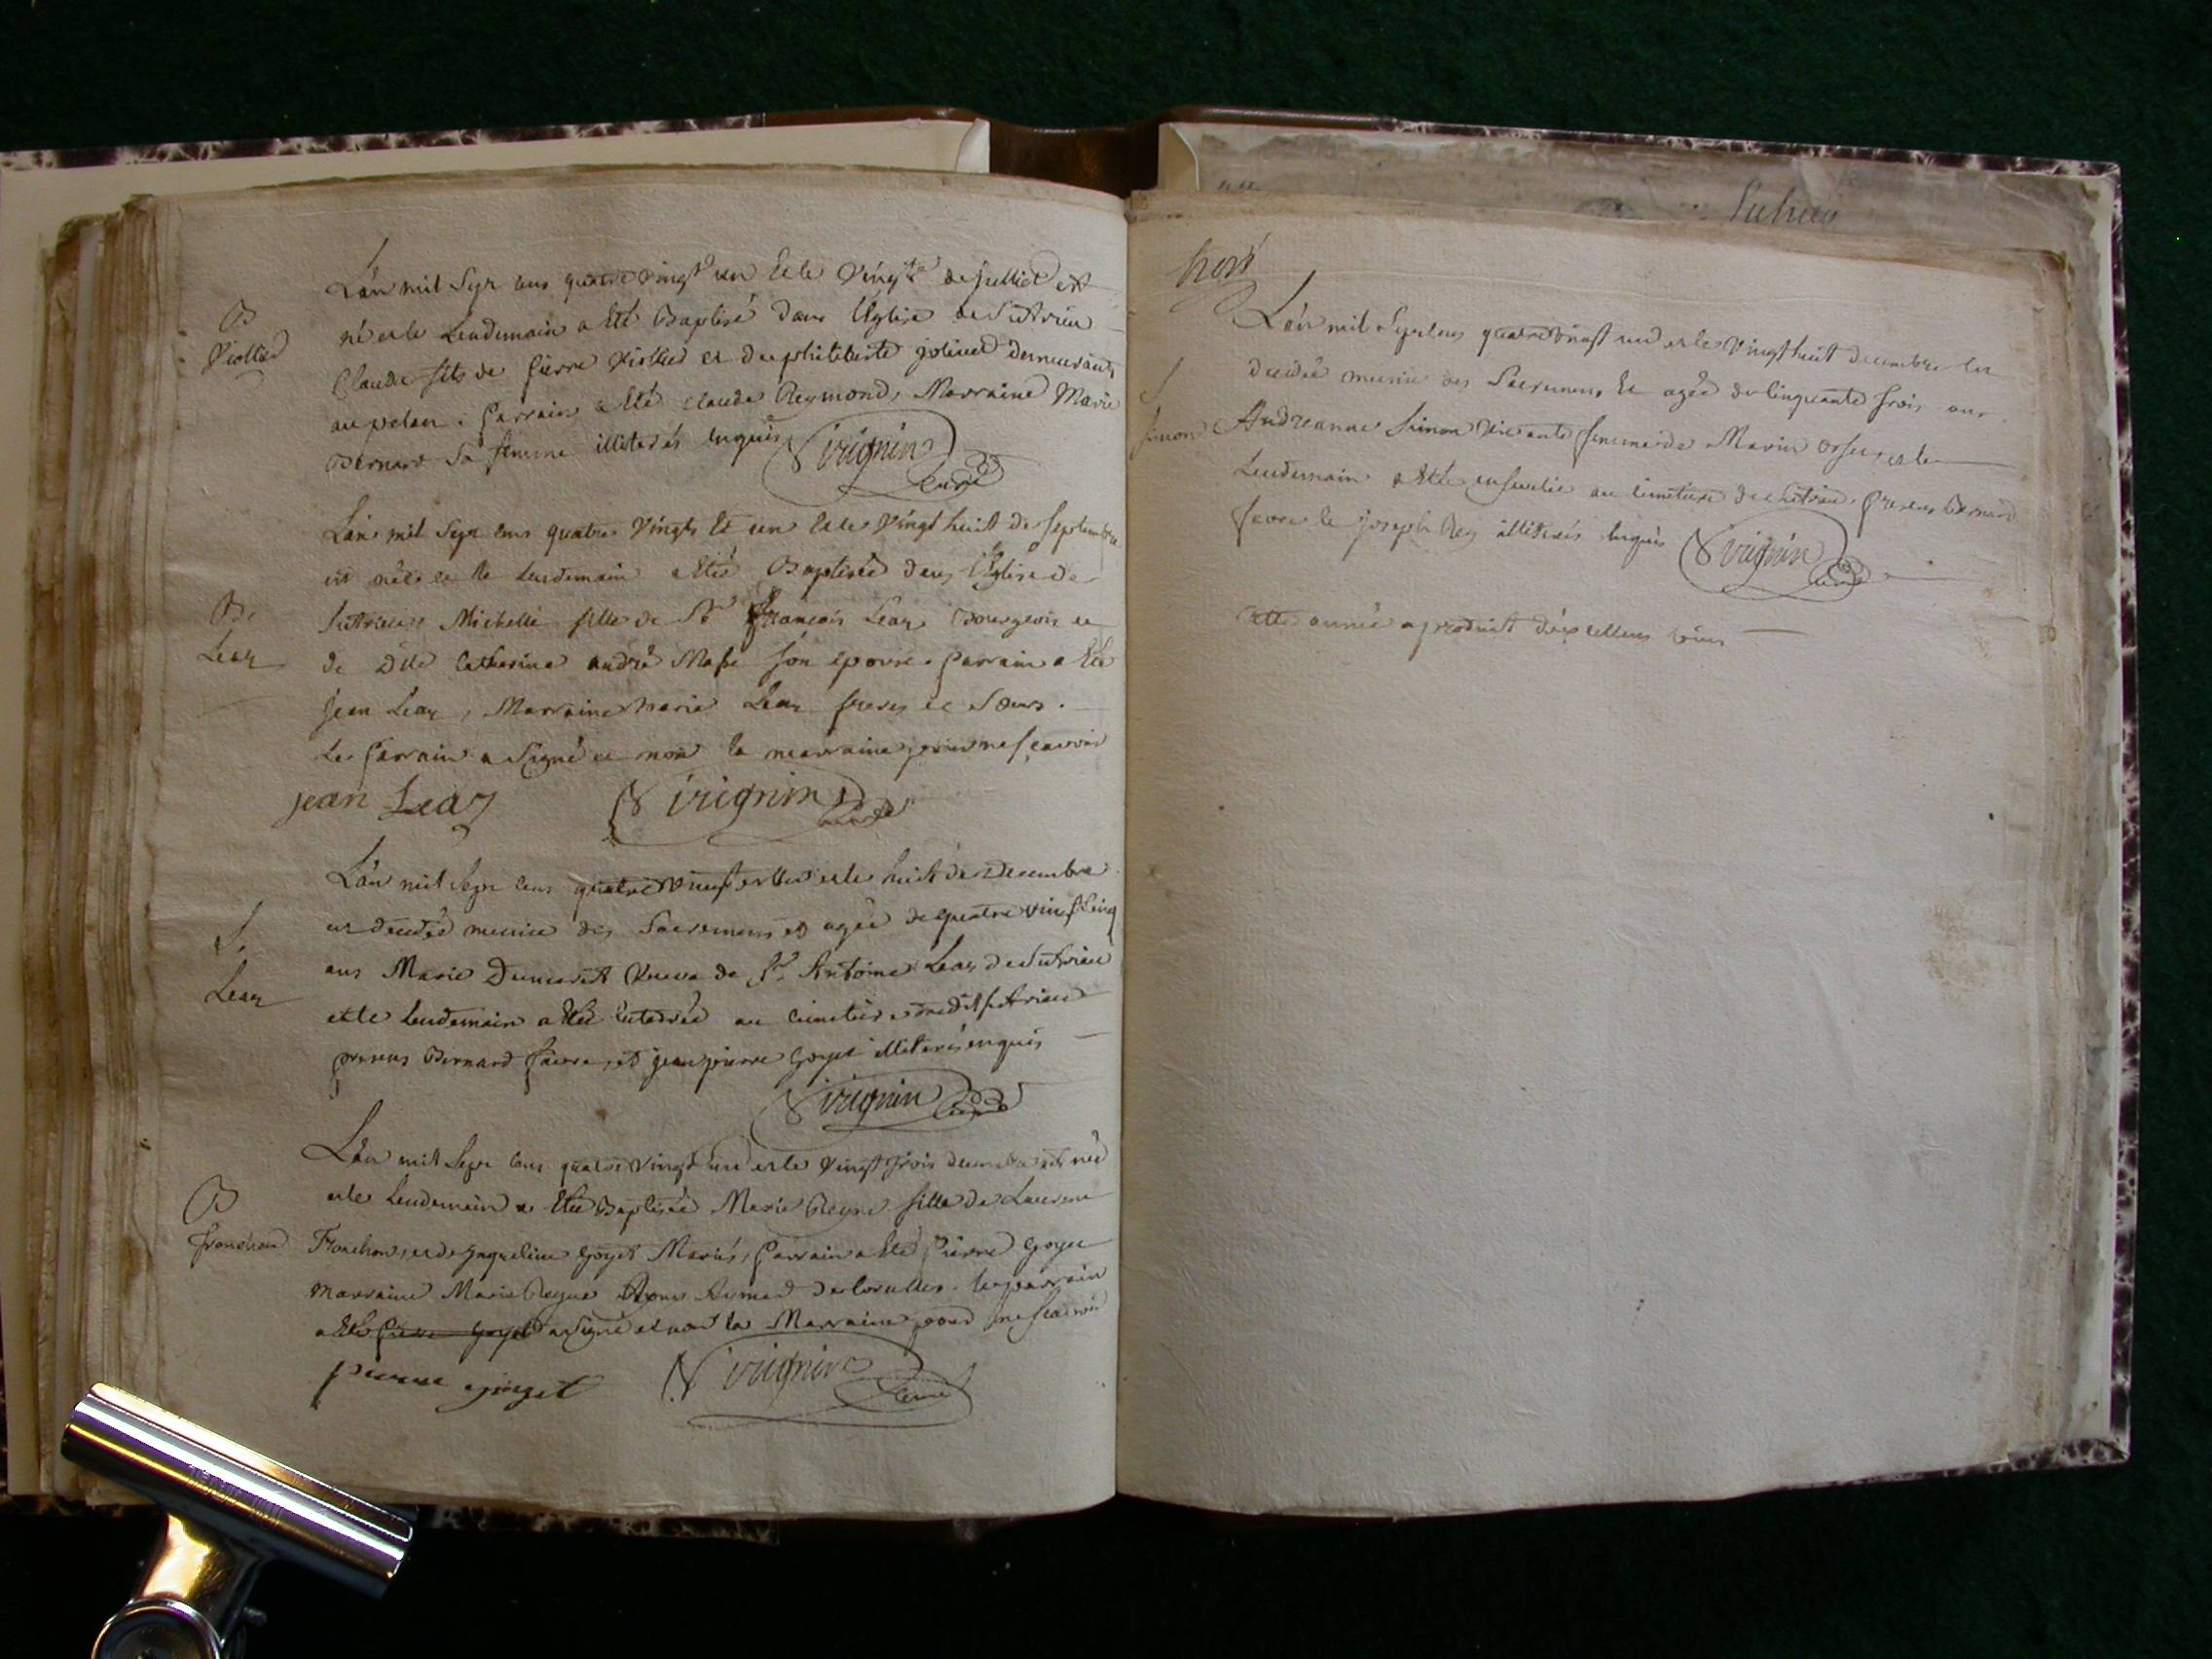 L'an mil Sept cens quatre vingt un et le vingt de Julliet est
né et le Lendemain a Eté Baptisé dans l'Eglise de Sutrieu
B
Viollet
Claude fils de pierre Viollet et de philiberte jolivet demeurants
au pelan. parrain a Eté claude Reymond, Marraine Marie
Bernard Sa femme illiterés Enquis Sirignin curé
L'an mil Sept cens quatre vingts et un et le vingt huit de septembre
est née et le Lendemain a Eté Baptisée dans l'Eglise de
B.
Leaz
Sutrieu Michelle fille de Sr françois Leaz Bourgeois et
de Dlle Catherine andré Masse son epouse. parrain a Eté
jean Leaz, Marraine marie Leaz freres et soeurs.
Le parrain a Signé et non la marraine pour ne sçavoir
jean Leaz Sirignin curé
L'an mil Sept cens quatre vingt et un et le huit de decembre
est decedée munie des Sacremens et agée de quatre vingt cinq
S.
Leaz
ans Marie veuve de Sr. Antoine Leaz de Sutrieu
et le lendemain a Eté enterrée au cimetiere dudit Sutrieu
presens Bernard favre, et jean pierre Goyet illiterés enquis
Sirignin curé
L'an mil Sept cens quatre vingt un et le vingt trois decembre est née
et le lendemain a Eté Baptisée Marie Reyne fille de Laurent
B
fronchon
Fronchon, et de jaqueline Goyet Mariés, parrain a Eté pierre Goyet
Marraine Marie Reyne Aymard . le parrain
a Eté pierre Goyet a signé et non la Marraine pour ne scavoir
pierre goyet Sirignin curé
L'an mil Sept cens quatre vingt un et le vingt huit decembre est
S
Simon
decedée munie des Sacremens et agée de cinquante trois ans
Andreanne Simon vivante femme de Marin et le
Lendemain a Eté ensevelie au cimetiere de Sutrieu. presens Bernard
favre et joseph Rey illiterés enquis Sirignin curé
cette année a produit d'excellens vins